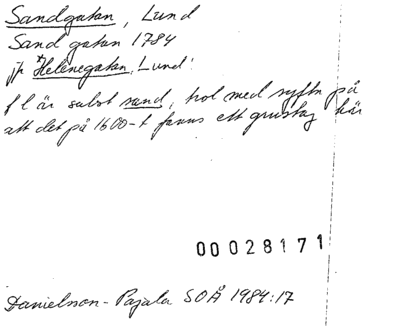 Sandgatan, Lund
Sandgatan 1784
jfr *Helenegatan, Lund!
f l är subst sand, trol med syftn på
att det på 1600-t fanns ett grustag här
00028171
Danielson-Pajala SOÅ 1984:17